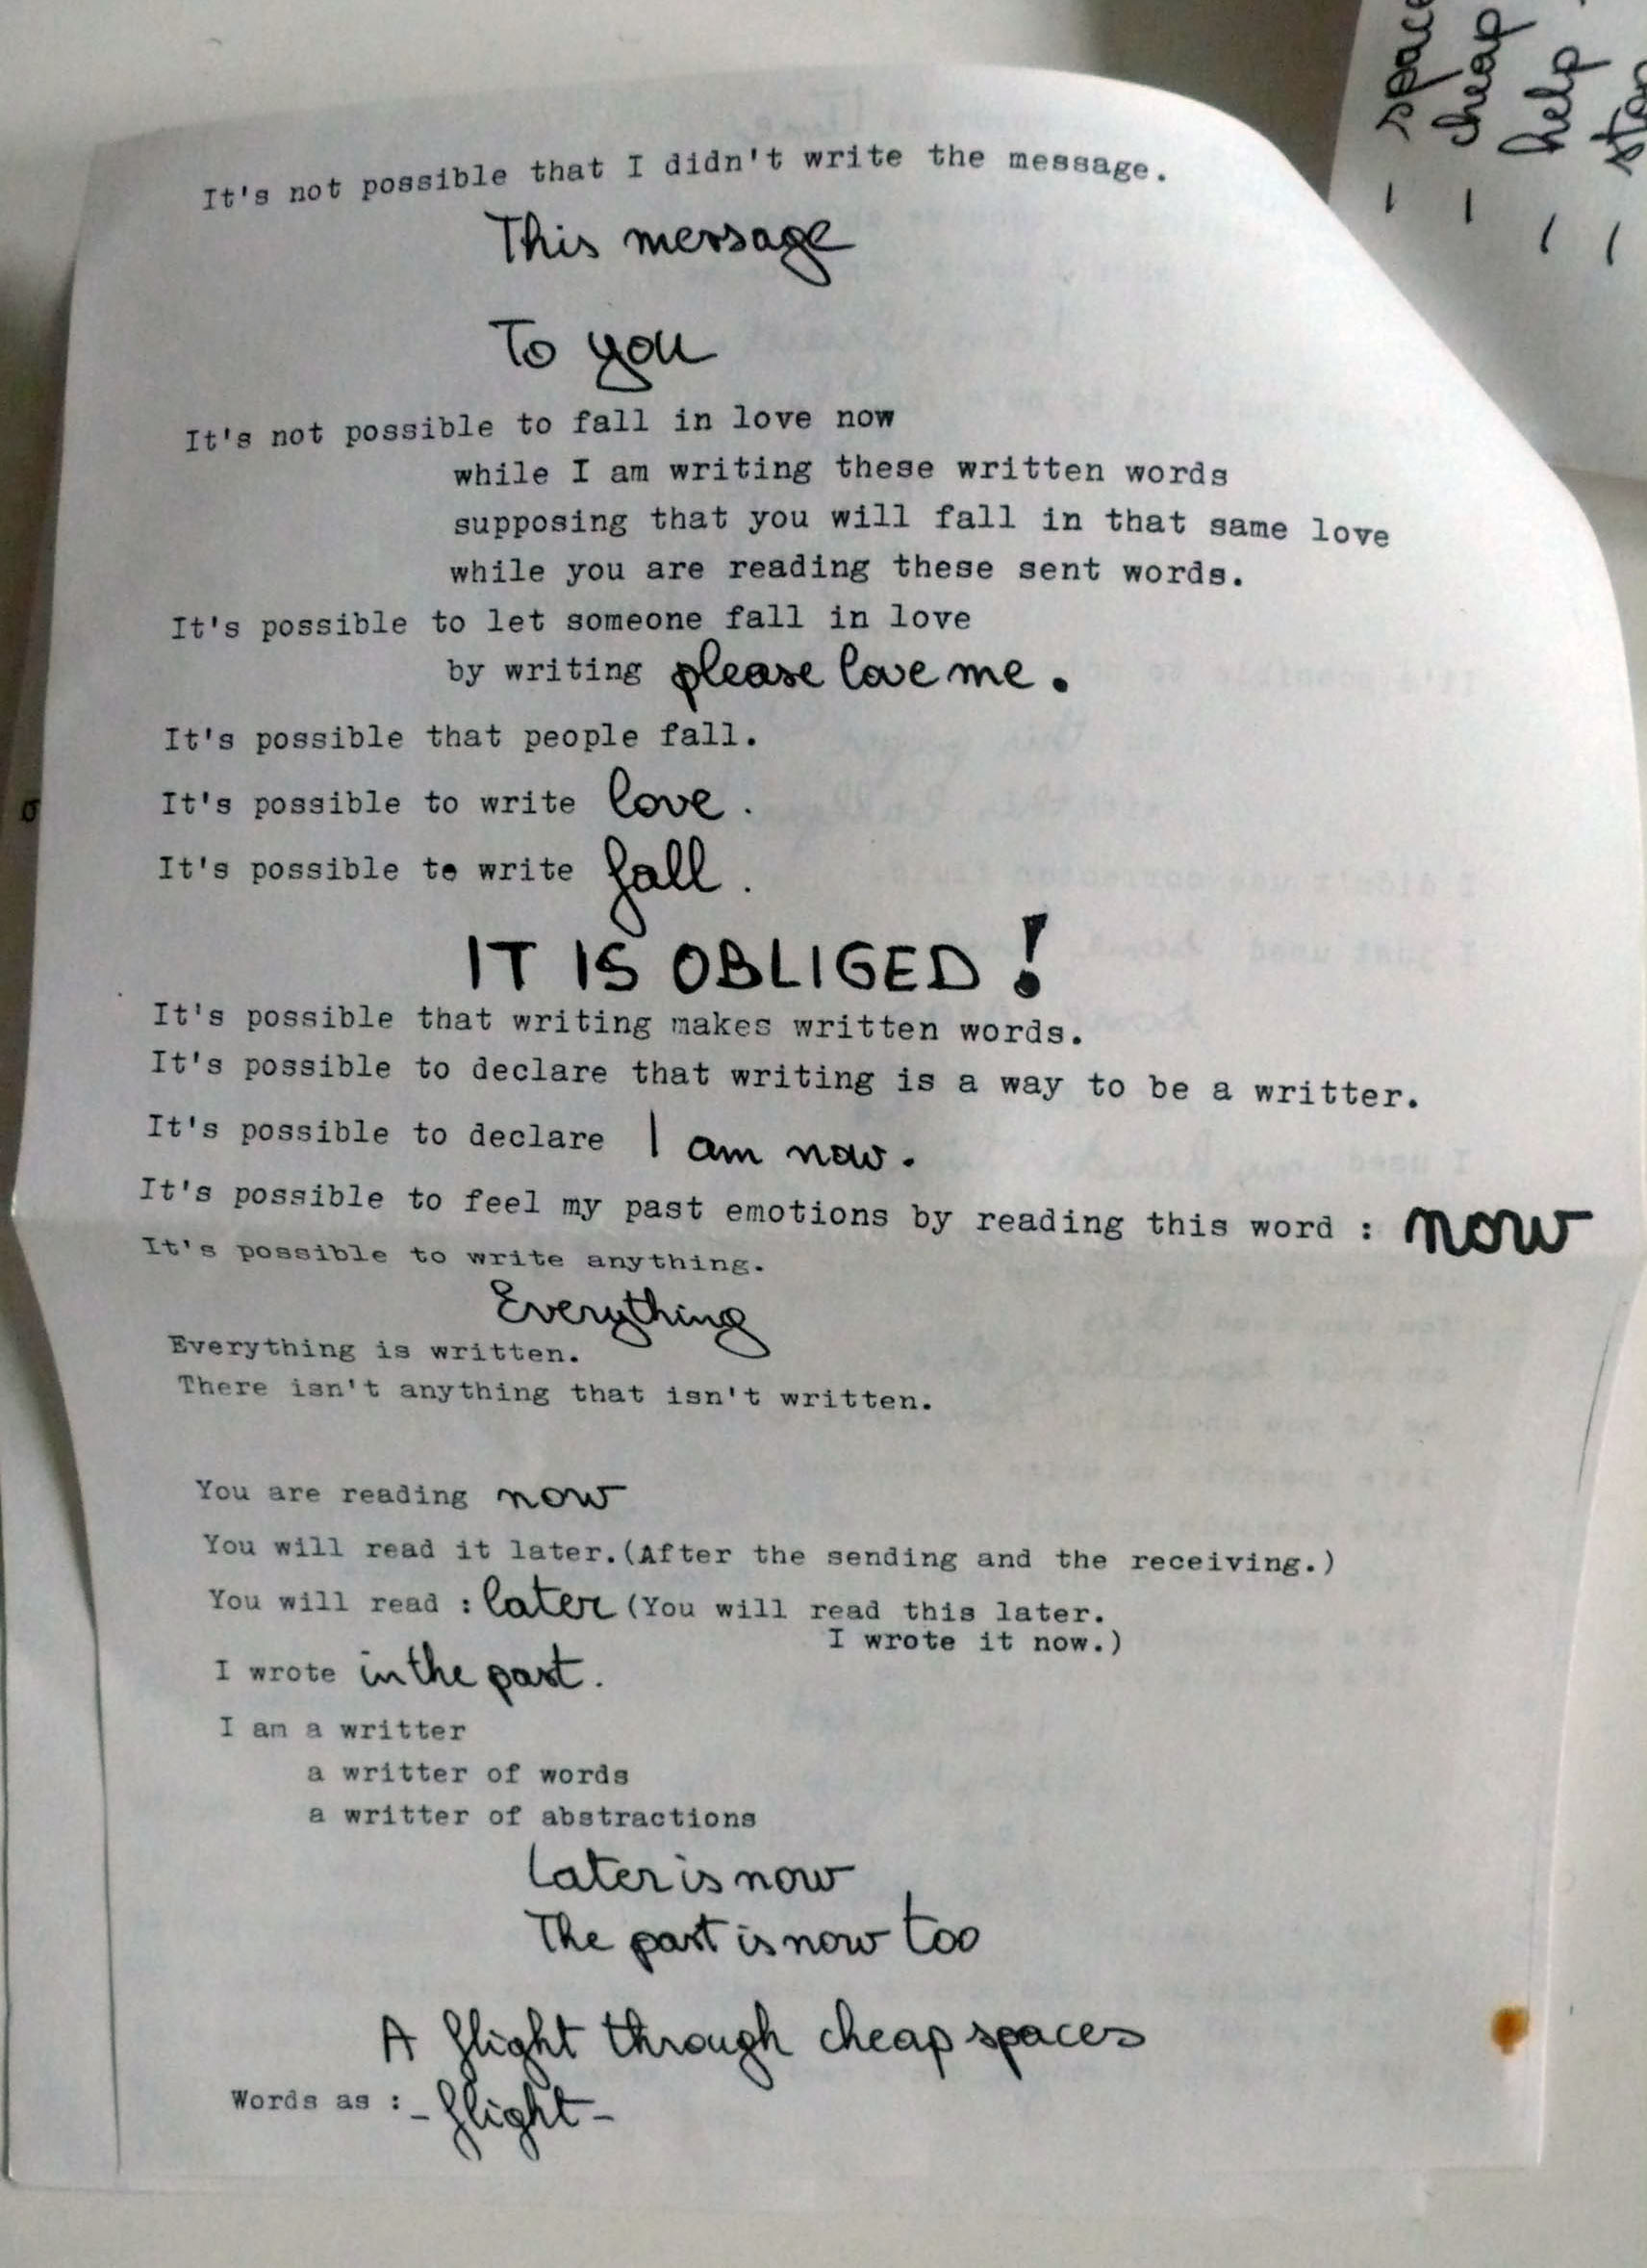 It's not possible that I didn't write the message.
This message
To you
It's not possible to fall in love now
while I am writing these written words
supposing that you will fall in that same love
while you are reading these sent words.
It's possible to let someone fall in love
by writing please love me.
It's possible that people fall.
It's possible to write love.
It's possible to write fall.
IT IS OBLIGED!
It's possible that writing makes written words.
It's possible to declare that writing is a way to be a writter.
It's possible to declare I am now.
It's possible to feel my past emotions by reading this word : now
It's possible to write anything.
Everything
Everything is written.
There isn't anything that isn't written.
You are reading now
You will read it later.(After the sending and the receiving.)
You will read : later (You will read this later.
I wrote it now.)
I wrote in the past.
I am a writter
a writter of words
a writter of abstractions
Later is now
The past is now too
A flight through cheap spaces
Words as : - flight -
- cheap
- help